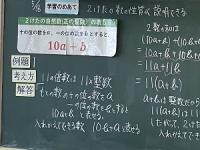 5/6 学習のめあて 2けたの数の性質
説明できる
2けたの自然数(正の整数)の表し方
十の位の数をa、一の位の数をbとすると、
10a+b
例題
考え方
解答
11の倍数は11×整数
2けたの数の十の位の数をa
一の位の数をbとすると
10a+bと表せる。
入れかえてできる数 10b+aと表せる
2数の和は
(10a+b)+(10b+a)
=10a+b+10b+a
=11a+11b
=11(a+b)
a+bは整数だから
11(a+b)は11の
したがって、2けた
入れかえてできる